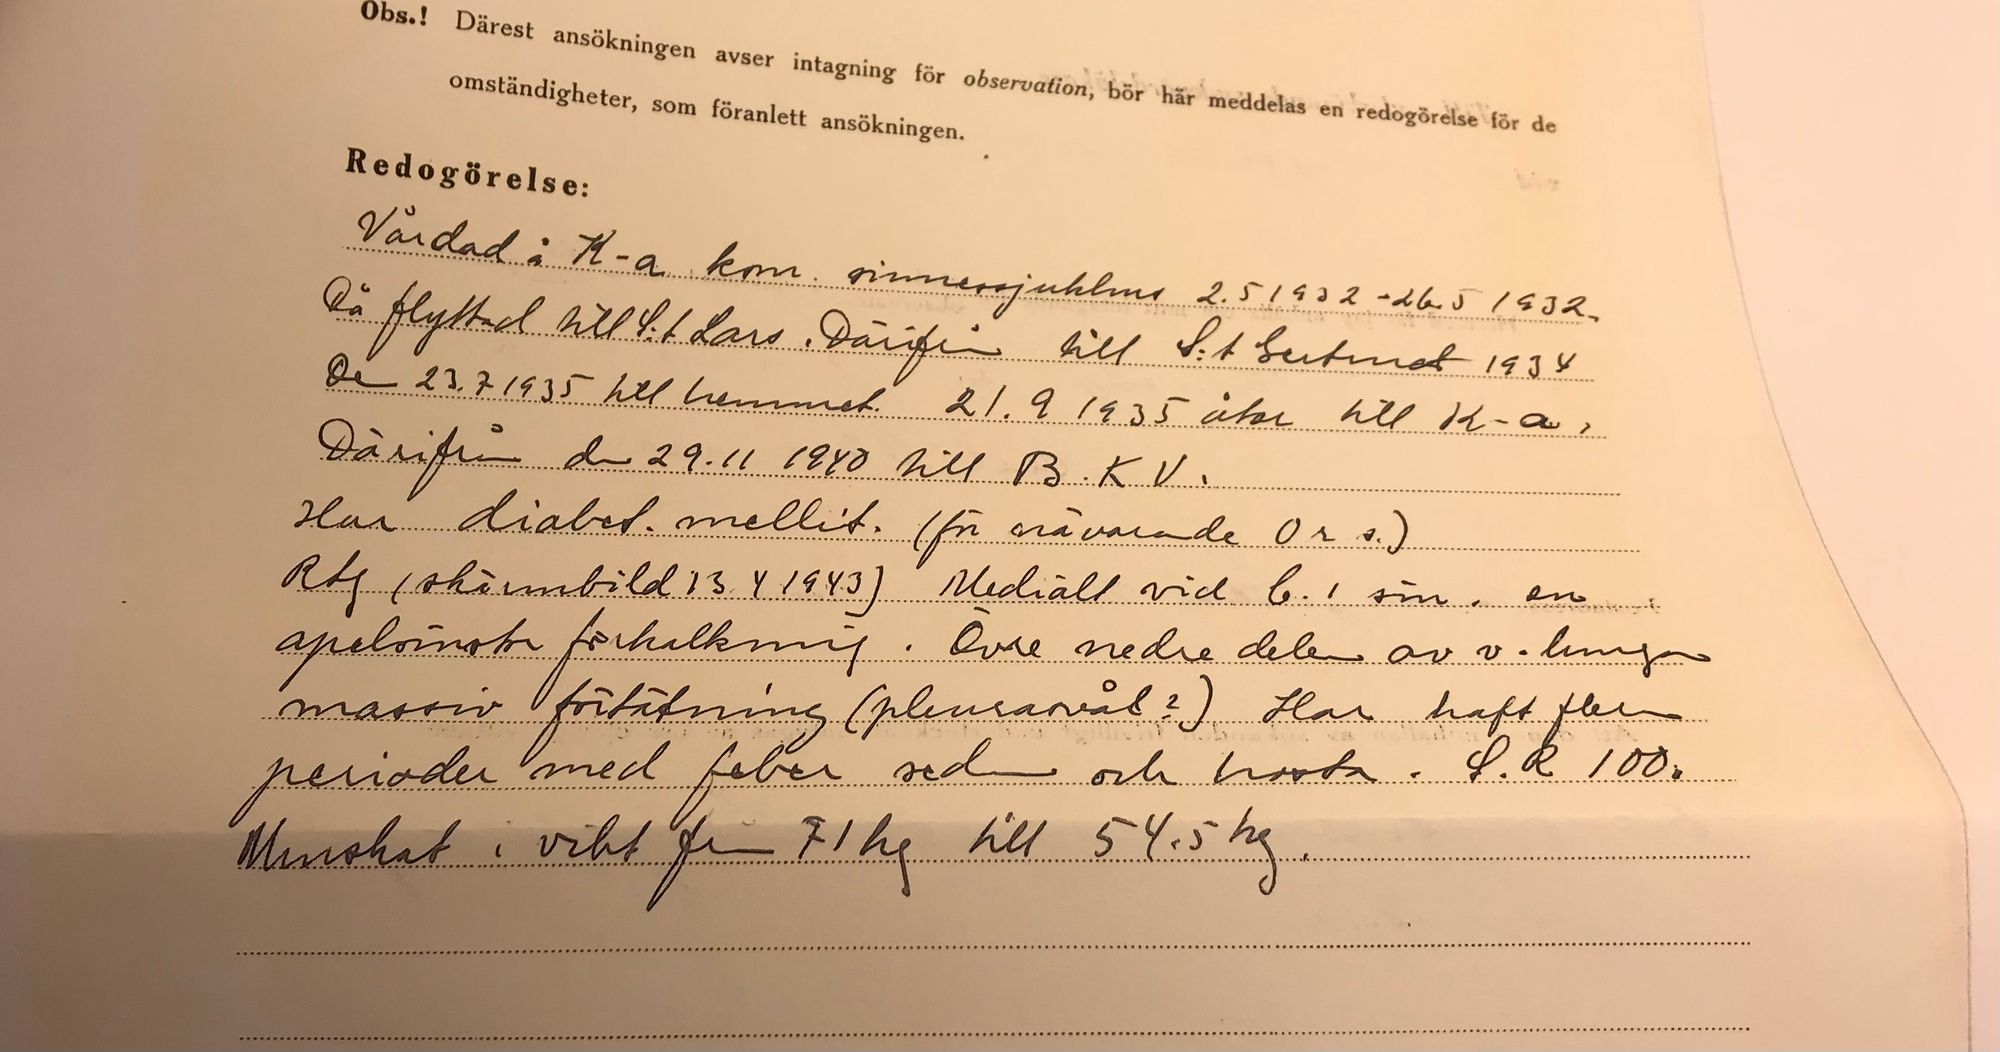 Obs.! Därest ansökningen avser intagning för observation, bör här meddelas en redogörelse för de
omständigheter, som föranlett ansökningen.
Redogörelse:
Vårdad å K-a kom. sinnessjukhus 2.5 1932 - 26.5 1932.
Då flyttad till S:t Lars. Därifrån till S:t Gertrud 1934
De 23.7 1935 till hemmet. 21.9 1935 åter till K-a,
Därifrån den 29.11 1940 till B.K.V.
Har diabet. mellit. (för närvarande 0 r s.)
Rtg (skärmbild 13 4 1943) Mediält vid C. 1 sin. en
apelsinstor förkalkning. Övre nedre delen av v. lungan
massiv förtätning (pleurasvål?) Har haft flera
perioder med feber sedan och hosta. S.R 100.
Minskat i vikt från 71 kg till 54.5 kg.